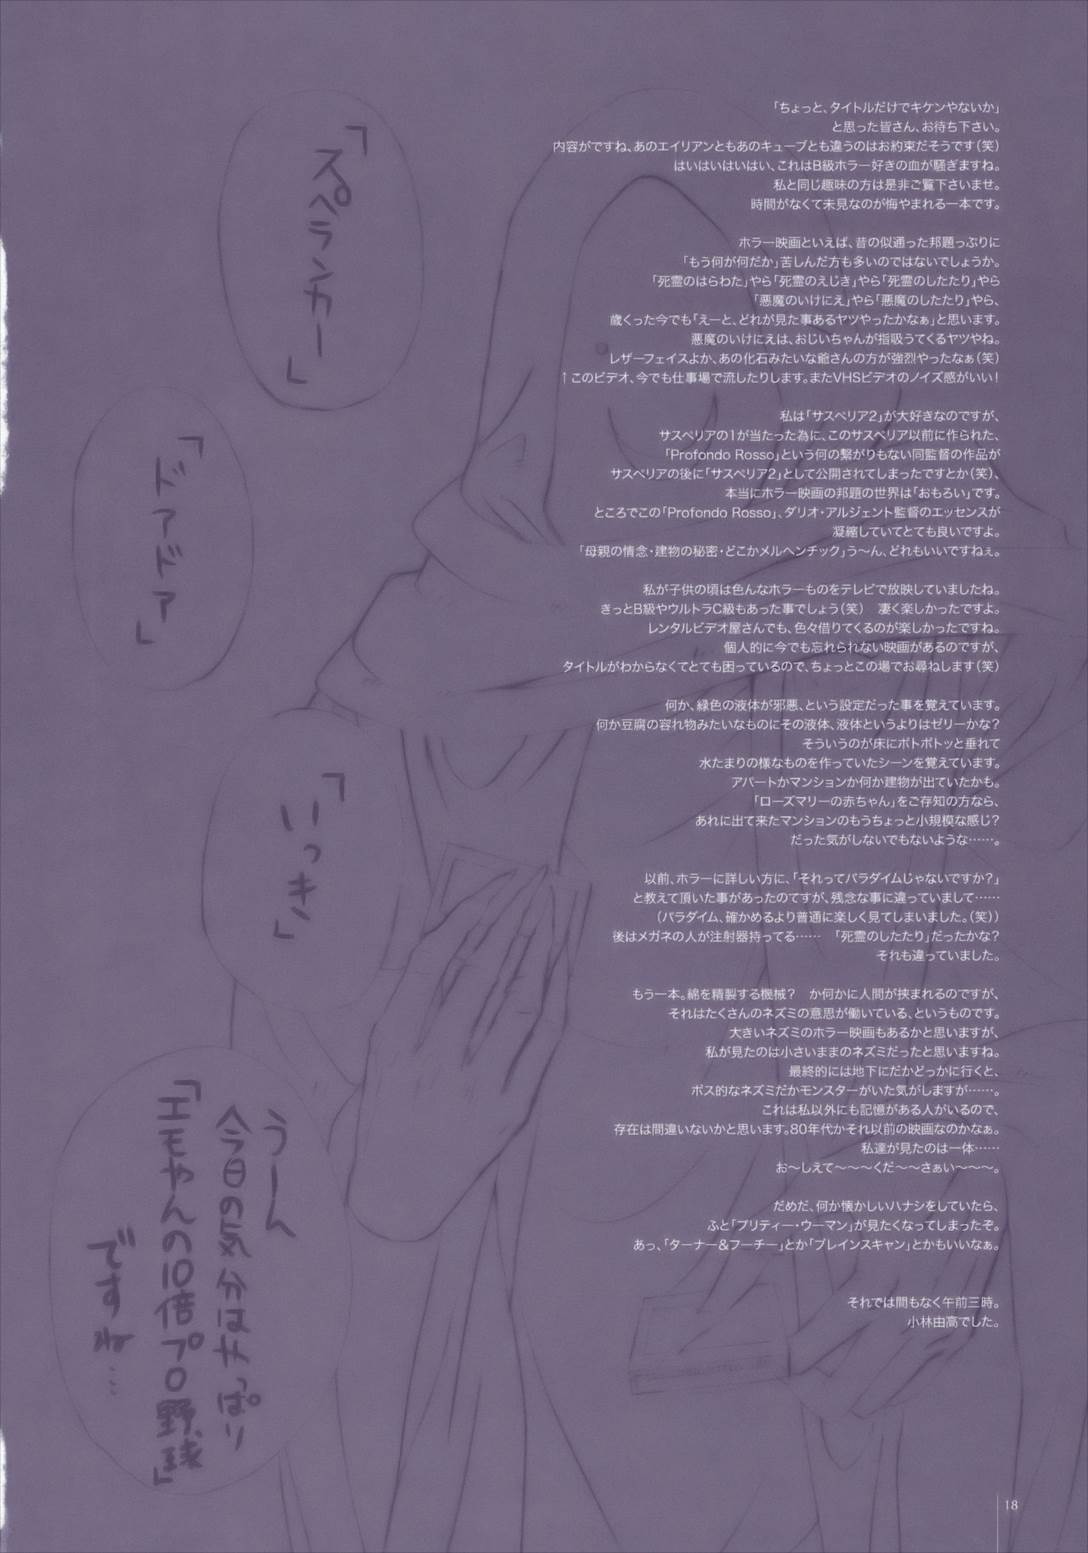 「ちょっと、タイトルだけでキケンやないか」
と思った皆さん、お待ち下さい。
内容がですね、あのエイリアンともあのキューブとも違うのはお約束だそうです（笑）
はいはいはいはい、これはB級ホラー好きの血が騒ぎますね。
私と同じ趣味の方は是非ご覧下さいませ。
時間がなくて未見なのが悔やまれる一本です。
ホラー映画といえば、昔の似通った邦題っぷりに
「もう何が何だか」苦しんだ方も多いのではないでしょうか。
「死霊のはらわた」やら「死霊のえじき」やら「死霊のしたたり」やら
「悪魔のいけにえ」やら「悪魔のしたたり」やら、
歳くった今でも「えーと、どれが見た事あるヤツやったかなぁ」と思います。
悪魔のいけにえは、おじいちゃんが指吸うてくるヤツやね。
レザーフェイスよか、あの化石みたいな爺さんの方が強烈やったなぁ（笑）
↑このビデオ、今でも仕事場で流したりします。またVHSビデオのノイズ感がいい！
私は「サスペリア2」が大好きなのですが、
サスペリアの1が当たった為に、このサスペリア以前に作られた、
「Profondo Rosso」という何の繋がりもない同監督の作品が
サスペリアの後に「サスペリア2」として公開されてしまったですとか（笑）、
本当にホラー映画の邦題の世界は「おもろい」です。
ところでこの「Profondo Rosso」、ダリオ・アルジェント監督のエッセンスが
凝縮していてとても良いですよ。
「母親の情念・建物の秘密・どこかメルヘンチック」う〜ん、どれもいいですねぇ。
私が子供の頃は色んなホラーものをテレビで放映していましたね。
きっとB級やウルトラC級もあった事でしょう（笑）　凄く楽しかったですよ。
レンタルビデオ屋さんでも、色々借りてくるのが楽しかったですね。
個人的に今でも忘れられない映画があるのですが、
タイトルがわからなくてとても困っているので、ちょっとこの場でお尋ねします（笑）
何か、緑色の液体が邪悪、という設定だった事を覚えています。
何か豆腐の容れ物みたいなものにその液体、液体というよりはゼリーかな？
そういうのが床にボトボトッと垂れて
水たまりの様なものを作っていたシーンを覚えています。
アパートかマンションか何か建物が出ていたかも。
「ローズマリーの赤ちゃん」をご存知の方なら、
あれに出て来たマンションのもうちょっと小規模な感じ？
だった気がしないでもないような……。
以前、ホラーに詳しい方に、「それってパラダイムじゃないですか？」
と教えて頂いた事があったのですが、残念な事に違っていまして……
（パラダイム、確かめるより普通に楽しく見てしまいました。（笑））
後はメガネの人が注射器持ってる……　「死霊のしたたり」だったかな？
それも違っていました。
もう一本。綿を精製する機械？　か何かに人間が挟まれるのですが、
それはたくさんのネズミの意思が働いている、というものです。
大きいネズミのホラー映画もあるかと思いますが、
私が見たのは小さいままのネズミだったと思いますね。
最終的には地下にだかどっかに行くと、
ボス的なネズミだかモンスターがいた気がしますが……。
これは私以外にも記憶がある人がいるので、
存在は間違いないかと思います。80年代かそれ以前の映画なのかなぁ。
私達が見たのは一体……
お〜しえて〜〜〜くだ〜〜さぁい〜〜〜。
だめだ、何か懐かしいハナシをしていたら、
ふと「プリティー・ウーマン」が見たくなってしまったぞ。
あっ、「ターナー＆フーチー」とか「ブレインスキャン」とかもいいなぁ。
それでは間もなく午前三時。
小林由高でした。
「スペランカー」
「ドアドア」
「いっき」
うーん
今日の気分はやっぱり
「エモやんの10倍プロ野球」
ですね…
18